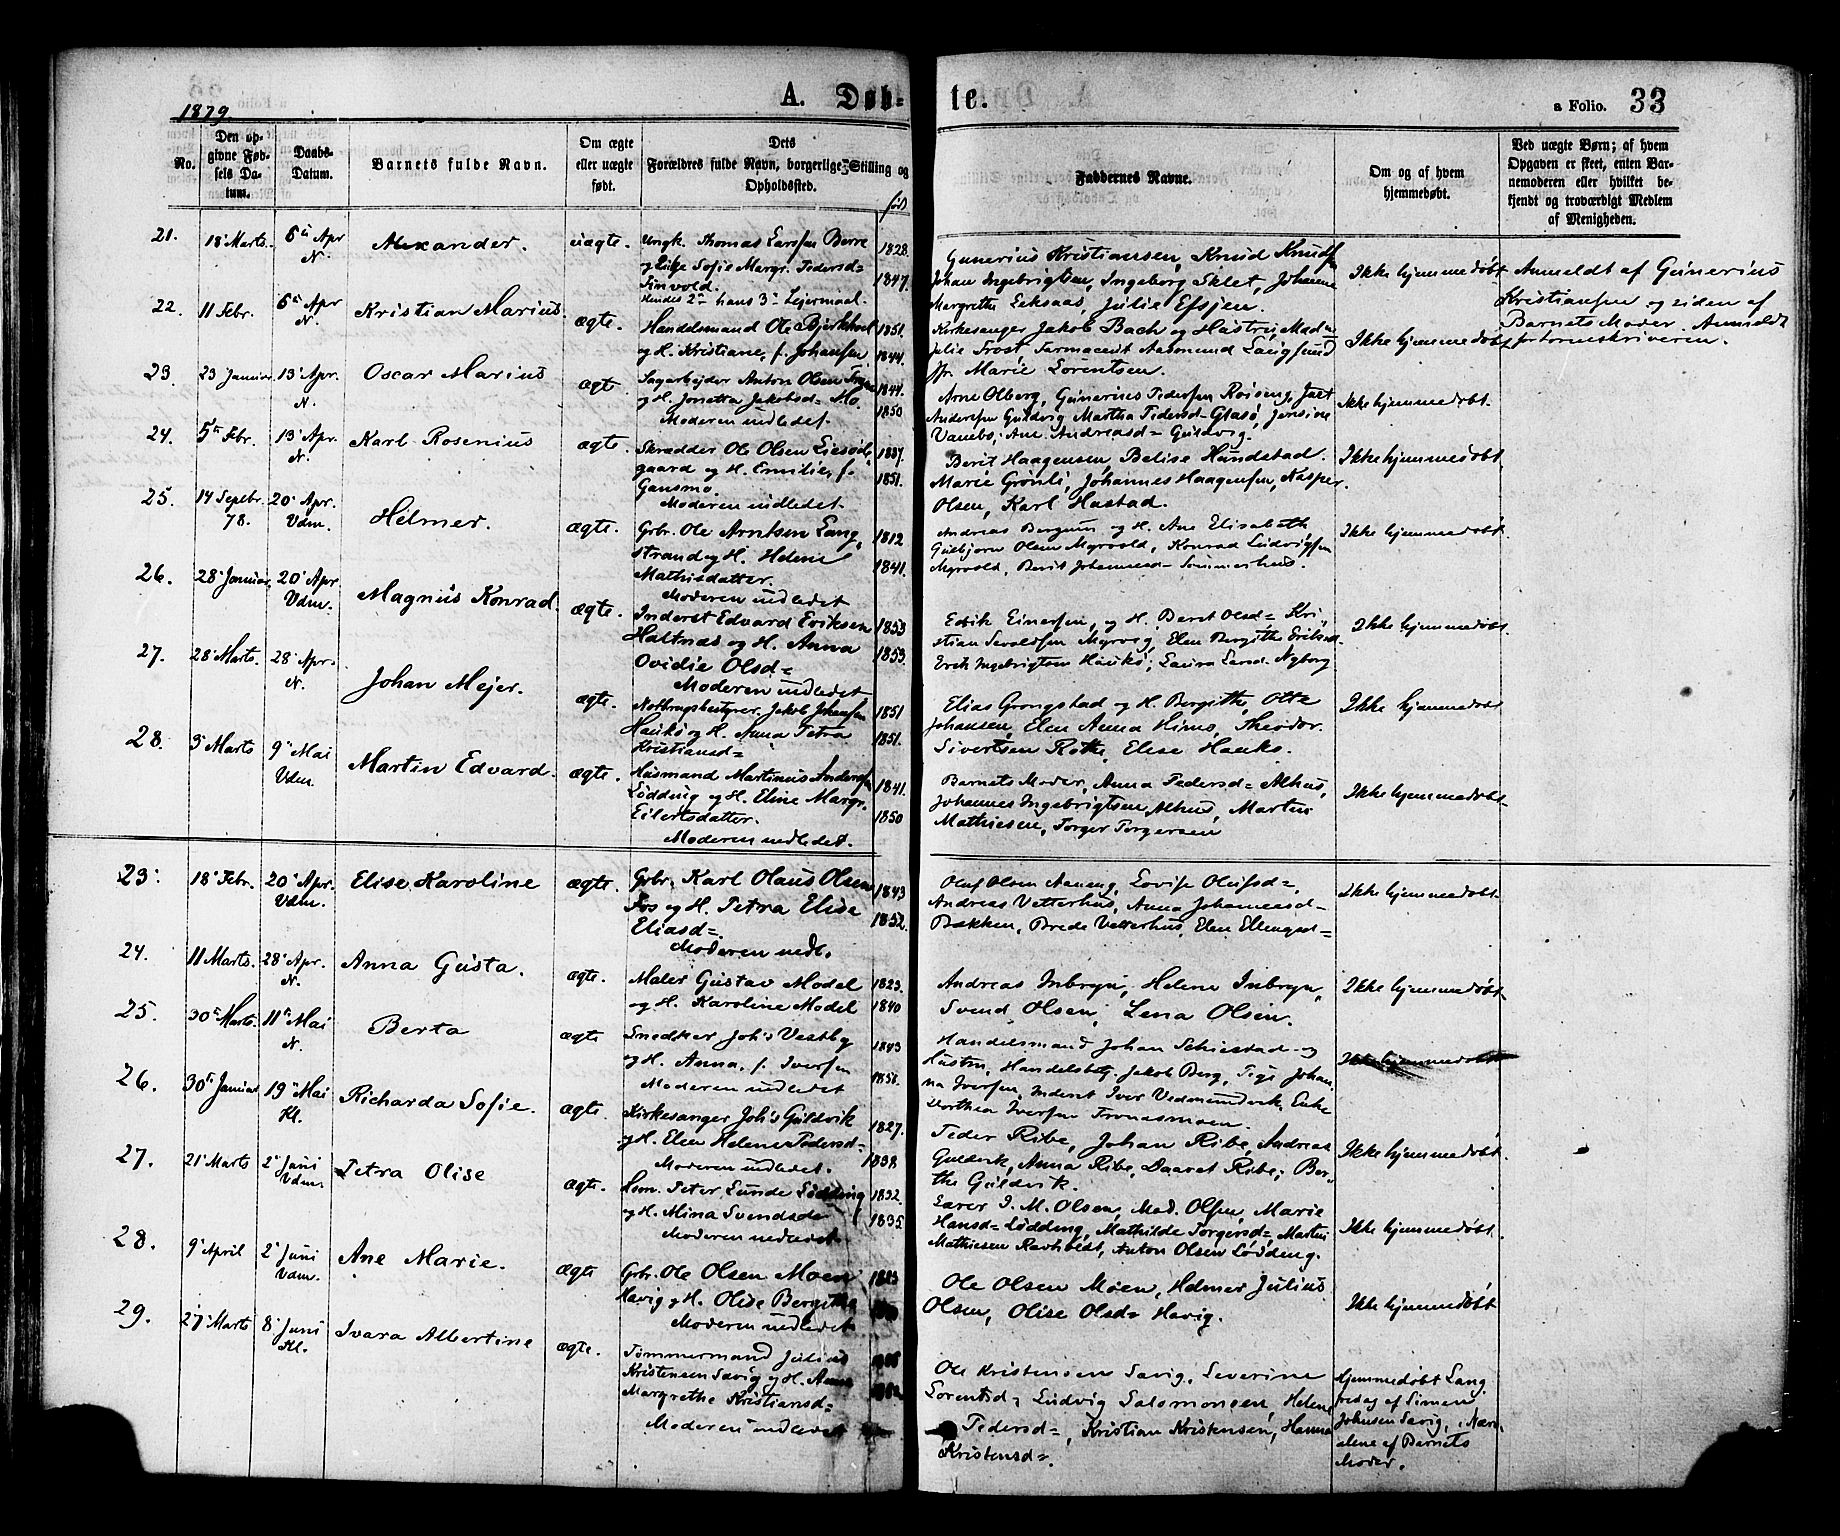 1879
A. Døb-
te.
a Folio. 33
No.
Den op-
givne Fød-
sels Da-
tum.
Daabs-
Datum.
Barnets fulde Navn.
Om ægte
eller uægte
født.
Dets
Forældres fulde Navn, borgerlige Stilling og
Opholdssted.
Faddernes Navne.
Om og af hvem
hjemmedøbt.
Ved uægte Børn; af hvem
Opgaven er skeet, enten Bar-
nemoderen eller hvilket be-
kjendt og troværdigt Medlem
af Menigheden.
21.
18 Marts
6 Apr
N.
Alexander.
uægte.
Ungk. Thomas Larssen Borre
og Pige Sofie Margr. Pedersd=
Finvold.
Hendes 2 hans 3 Lejermaal.
1828.
1847.
Gunerius Kristiansen, Knud Knuds
Johan Ingebrigtsen, Ingeborg Sklet, Johanne
Margrethe Leksaas, Julie Efsjen.
Ikke hjemmedøbt
Anmeldt af Gunerius
Kristiansen og siden af
Barnets Moder. Anmeldt
22.
11 Febr.
6 Apr
N.
Kristian Marius.
ægte.
Handelsmand Ole Bjerkholt
og H. Kristiane, f. Johansen
1851.
1844.
Kirkesanger Jakob Bach og Hustru, Mad=
Julie Frost, Farmaceut Aasmund
Marie Lorentsen.
Ikke hjemmedøbt
23.
23 Januar
13 Apr.
N.
Oscar Marius
ægte.
Sagarbejder Anton Olsen
og H. Jonetta Jakobsd= Mo.
Moderen indledet.
1844.
1850
Arne Olberg, Gunerius Pedersen Røiseng,
Andersen Guldvig Martha Pedersd= Glasø, Jensine
Vanebo, Ane Andreasd= Guldvig.
Ikke hjemmedøbt.
24.
5 Febr.
13 Apr.
N.
Karl Rosenius
ægte.
Skrædder Ole Olsen
gaard og H. Emilie, f.
Gansmo.
Moderen indledet.
1837.
1851.
Berit Haagensen, Belise Hundstad.
Marie Grønli, Johannes Haagensen, Kasper
Olsen, Karl Hustad.
Ikke hjemmedøbt
25.
14 Septbr.
78.
20 Apr.
Vdm.
Helmer.
ægte.
Grbr. Ole Arntsen Lang,
strand og H. Helene
Mathisdatter.
Moderen indledet
1812
1841.
Andreas Bergum og H. Ane Elisabeth
Gulbjørn Olsen Myrvold, Konrad Ludvigsen
Myrvold, Berit Johannesd= Sommerhus.
Ikke hjemmedøbt
26.
28 Januar
20 Apr
Vdm.
Magnus Konrad
ægte.
Inderst Edvard Eriksen
Haltnæs og H. Anna
Ovidie Olsd=
Moderen indledet
1853
1853.
Edrik Einersen, og H. Beret Olsd= Kri,
stian Myrvig, Elen Bergithe Eriksd
Erik Ingebrigtsen Haukø, Laura Larsd= Nyborg
Ikke hjemmedøbt.
27.
28 Marts.
28 Apr.
N.
Johan Mejer.
ægte.
Notbrugsbestyrer Jakob Johansen
Haukø og H. Anna Petra
Kristiansd=
1851
1851.
Elias Grongstad og H. Bergitte, Otte
Johansen, Elen Anna Himo, Theodor
Sivertsen Røthe, Elise Haukø.
Ikke hjemmedøbt
28.
3 Marts
9 Mai
Vdm.
Martin Edvard.
ægte.
Husmand Martinus Anders
Lødding og H. Eline Margr.
Eilertsdatter.
Moderen indledet.
1841.
1850
Barnets Moder, Anna Pedersd= Alhus,
Johannes Ingebrigtsen Alhus, Martin
Mathiesen, Torger Torgersen
Ikke hjemmedøbt
23.
18 Febr.
20 Apr.
Vdm.
Elise Karoline
ægte.
Grbr. Karl Olaus Olsen
Fos og H. Petra Elise
Eliasd=
Moderen indl.
1843
1852.
Oluf Olsen Aunang, Lovise Olufsd=,
Andreas Vetterhus, Anna Johannesd=
Bækken, Brede Vetterhus, Elen Ellingsd=
Ikke hjemmedøbt
24.
11 Marts.
28 Apr.
N.
Anna Gusta.
ægte.
Maler Gustav Model
og H. Karoline Model
1823.
1840
Andreas Inbryn, Helene Inbryn,
Svend Olsen, Lena Olsen.
Ikke hjemmedøbt
25.
30 Marts.
11 Mai
N.
Berta
ægte
Snedker Joh's Vestby
og H. Anna, f. Iversen
Moderen indledet
1843
Handelsmand Johan Schiestad og
Hustru, Handelsbetj. Jakob Berg, Pige Johan,
na Iversen, Inderst Iver Vedmundvik, Enke
Dorthea Iversen Tronæsmoen.
Ikke hjemmedøbt
26.
30 Januar
19 Mai
Kl.
Richarda Sofie.
ægte.
Kirkesanger Joh's Guldvik
og H. Elen Helene Pedersd=
Moderen indledet.
1827.
1838.
Peder Ribe, Johan Ribe, Andreas
Guldvik, Anna Ribe, Daaret Ribe, Ber-
the Guldvik.
Ikke hjemmedøbt
27.
21 Marts
2 Juni
Vdm.
Petra Olise
ægte.
Hsm. Peter Lunde Lødding
og H. Mina Svendsda
Moderen indledet
1832.
1835
Lærer I. M. Olsen, Mad. Olsen, Marie
Hansd= Lødding, Mathilde Torgersd=, Martin
Mathiesen Ravholdt, Anton Olsen Lødding.
Ikke hjemmedøbt.
28.
9 April
2 Juni
Vdm.
Ane Marie.
ægte
Grbr. Ole Olsen Moen
Havig og H. Olise Bergithe
Moderen indledet
Ole Olsen Moen, Helmer Julius
Olsen, Olise Olsd= Havig.
Ikke hjemmedøbt
29.
27 Marts
8 Juni
Kl.
Ivara Albertine
ægte.
Tømmermand Julius
Kristensen Savig og H. Anna
Margrethe Kristiansd=
Moderen indledet
Ole Kristensen Savig, Severine
Lorentsd= Ludvig Salomonsen, Helene
Pedersd=, Kristian Kristensen, Hanna
Kristensd=.
Hjemmedøbt Lang,
fredag af Simen
Johnsen Savig, i Nær-
Barnets
Moder.